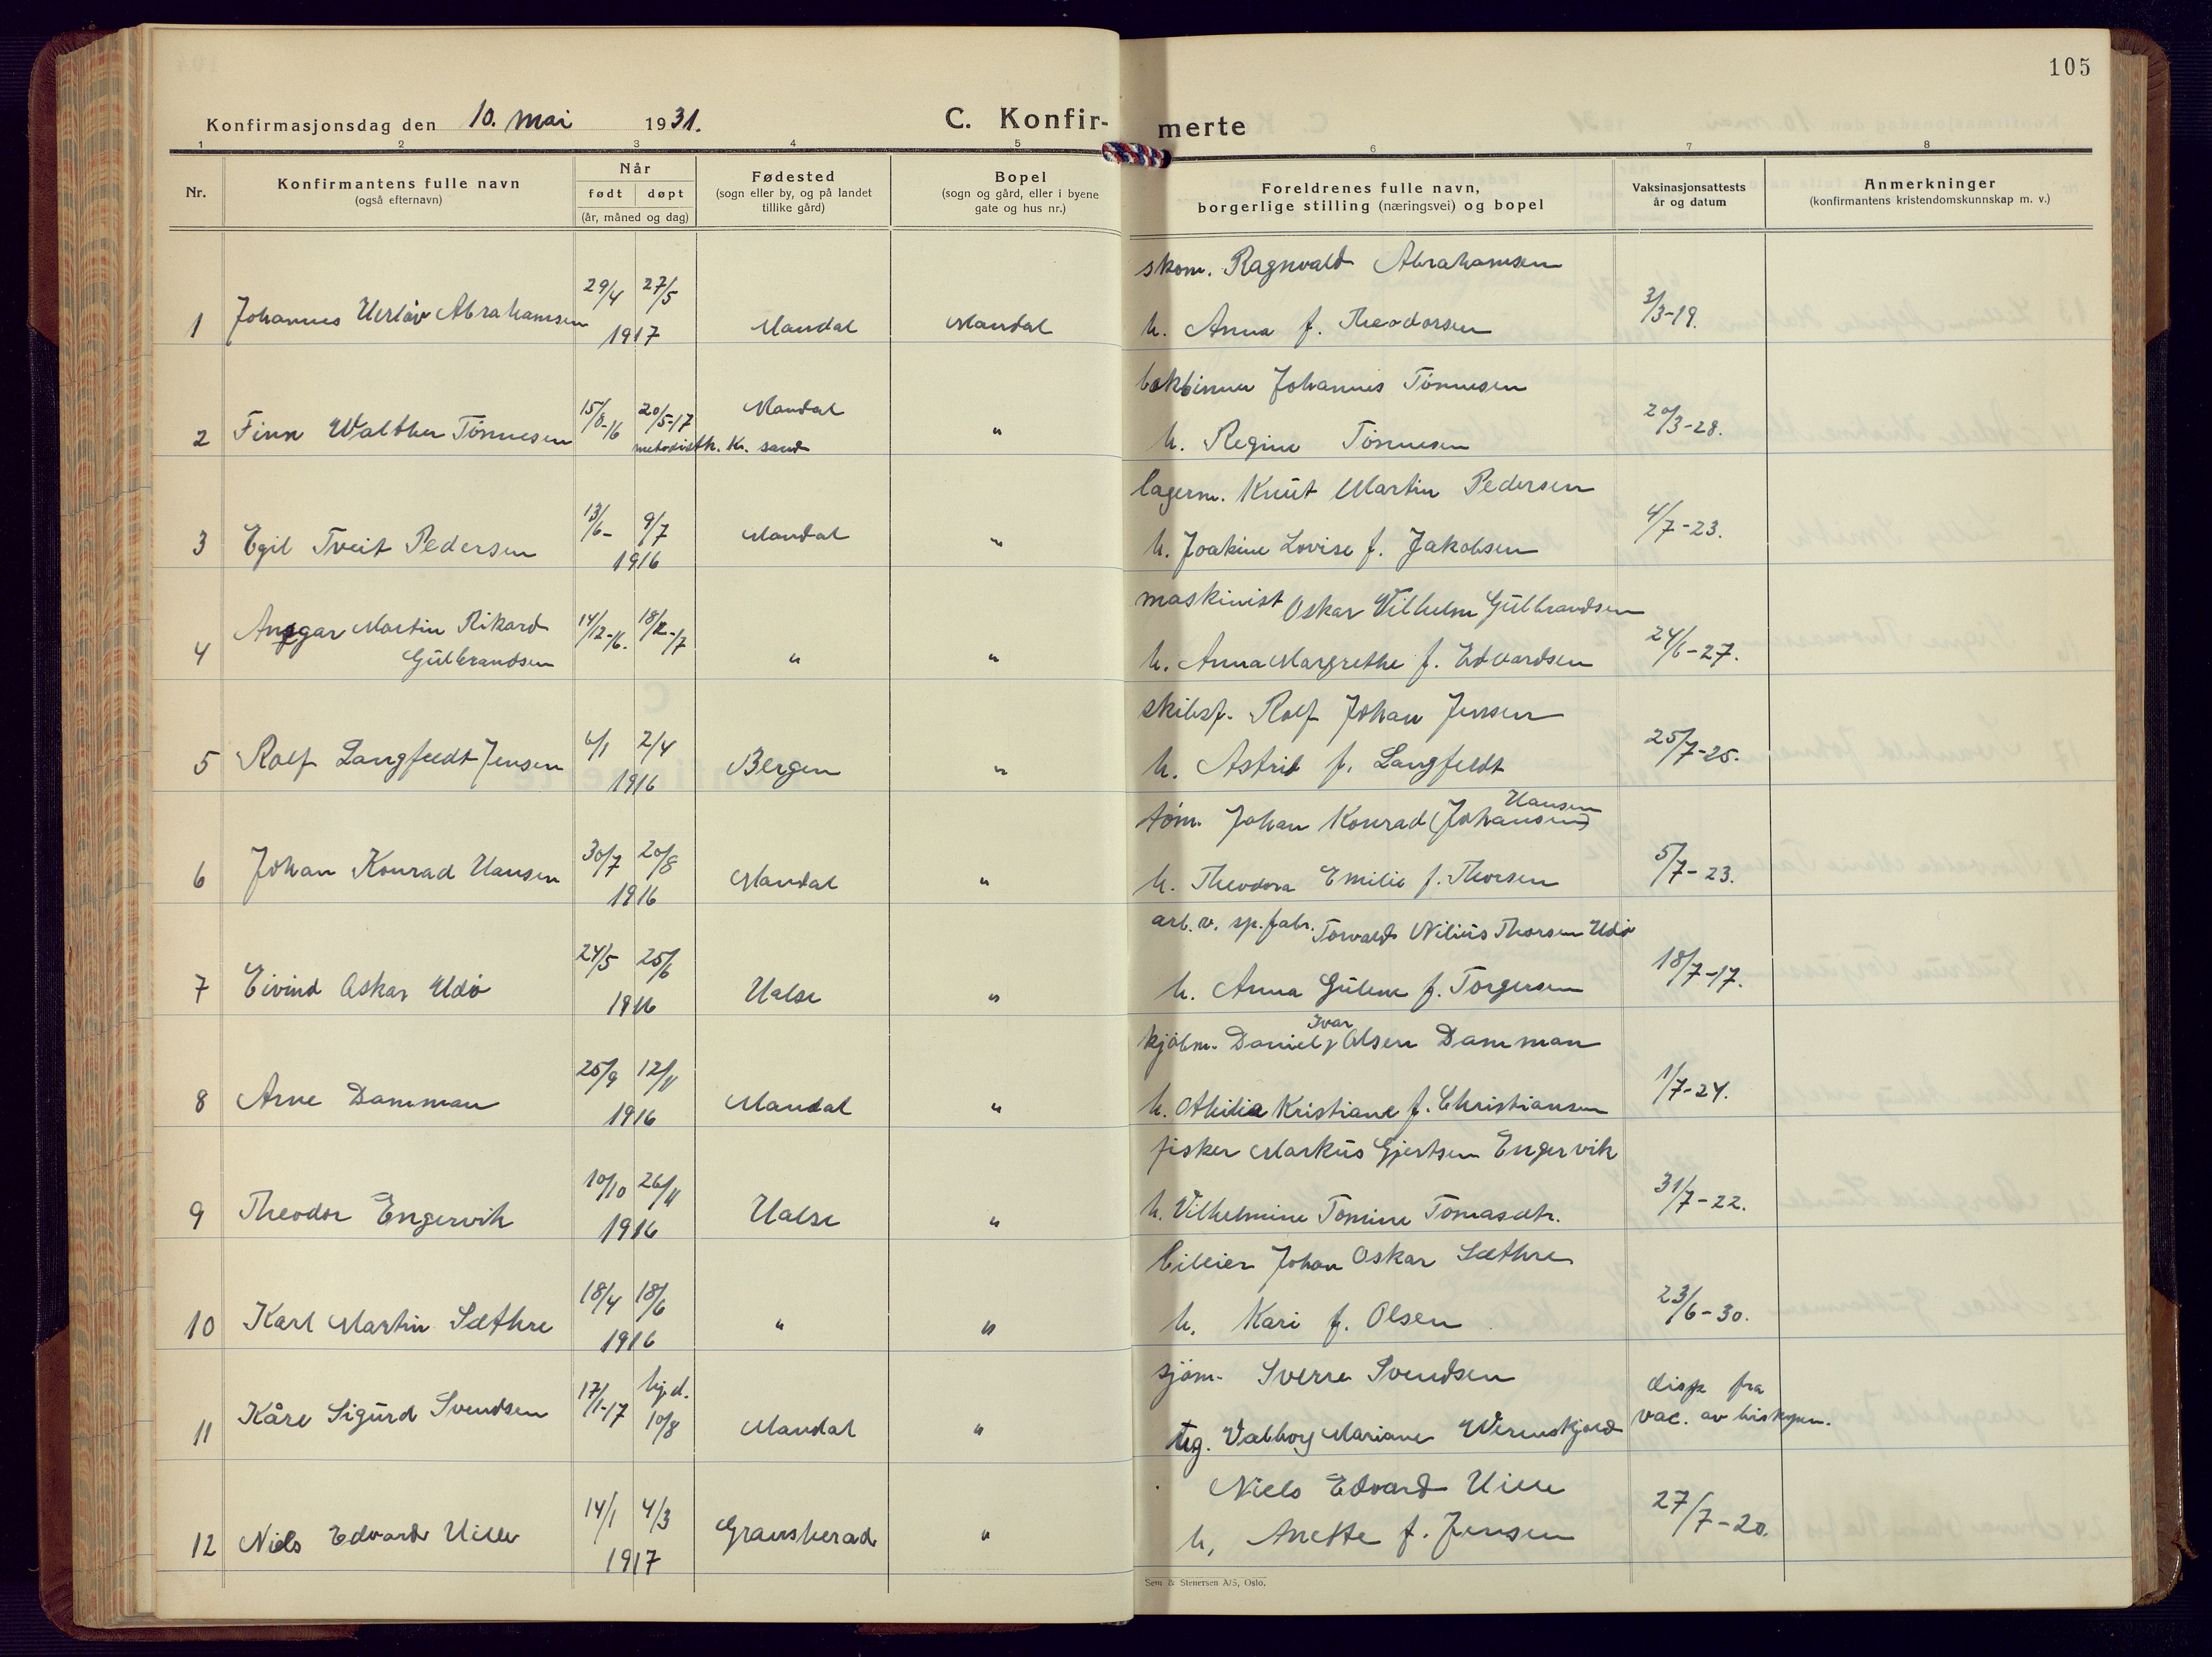 105
Konfirmasjonsdag den 10. mai 1931.
C. Konfir- merte
1 2 3 4 5 6 7 8
Nr.
Konfirmantens fulle navn
(også efternavn)
Når
født døpt
(år, måned og dag)
Fødested
(sogn eller by, og på landet
tillike gård)
Bopel
(sogn og gård, eller i byene
gate og hus nr.)
Foreldrenes fulle navn,
borgerlige stilling (næringsvei) og bopel
Vaksinasjonsattests
år og datum
Anmerkninger
(konfirmantens kristendomskunnskap m. v.)
skom. Ragnvald Abrahamsen
29/4 27/5
1 Johannes Herlöv Abrahamsen 1917 Mandal Mandal h. Anna f. Theodorsen 3/3-19.
bokbinner Johannes Tönnesen
15/8-16 20/5-17 Mandal
2 Finn Walther Tönnesen metodistk. Kr. sand " h. Regine Tönnesen 20/3-28.
lagerm. Knut Martin Pedersen
13/6- 9/7
3 Egil Tveit Pedersen 1916 Mandal " h. Joakine Lovise f. Jakobsen 4/7-23.
maskinist Oskar Vilhelm Gulbrandsen
4 Ansgar Martin Rikard 14/12-16. 18/2-17
Gulbrandsen " " h. Anna Margrethe f. Edvardsen 24/6-27.
skibsf. Rolf Johan Jensen
6/1 2/4
5 Rolf Langfeldt Jensen 1916 Bergen " h. Astrid f. Langfeldt 25/7-25.
Hansen
töm. Johan Konrad (Johansen)
30/7 20/8
6 Johan Konrad Hansen 1916 Mandal " h. Theodora Emilie f. Thorsen 5/7-23.
arb. v. sp. fabr. Torvald Nilius Thorsen Udö
24/5 25/6
7 Eivind Oskar Udö 1916 Halse " h. Anna Gulene f. Torgersen 18/7-17.
Ivar
kjöbm. Daniel Olsen Damman
25/9 12/11
8 Arne Damman 1916 Mandal " h. Othilie Kristiane f. Christiansen 1/7-24.
fisker Markus Gjertsen Engervik
10/10 26/11
9 Theodor Engervik 1916 Halse " h. Vilhelmine Tomine Tomasdtr. 31/7-22.
billeier Johan Oskar Sæthre
18/4 18/6
10 Karl Martin Sæthre 1916 " " h. Kari f. Olsen 23/6-30.
sjöm. Sverre Svendsen
17/1-17 hj.d. 10/8
11 Kåre Sigurd Svendsen Mandal " ug. Valborg Mariane Werenskjold
disp fra
vac. av biskopen.
Niels Edvard Hille
14/1 4/3
12 Niels Edvard Hille 1917 Gransherad " h. Anette f. Jensen 27/7-20.
Sem & Stenersen A/S, Oslo.